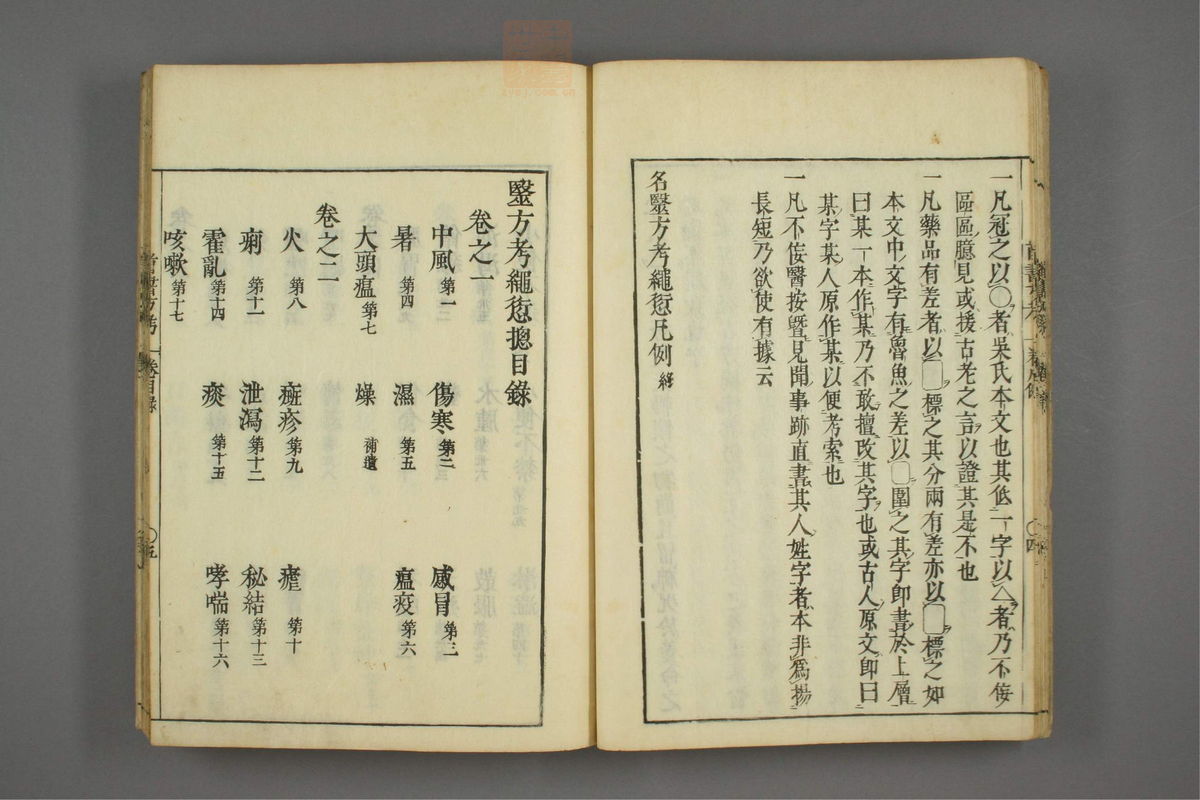 一凡冠之以○者吳氏本文也其低一字以△者乃不侫
區區臆見或援古老之言以證其是不也
一凡藥品有差者以□標之其分兩有差亦以□標之如
本文中文字有魯魚之差以□圍之其字卽書於上層
曰某一本作某乃不敢擅改其字也或古人原文卽曰
某字某人原作某以便考索也
一凡不侫醫按曁見聞事跡直書其人姓字者本非爲揚
長短乃欲使有據云
名毉方考繩愆凡例 終
毉方考繩愆摠目錄
卷之一
中風 第一 傷寒 第二 感冒 第三
暑 第四 濕 第五 瘟疫 第六
大頭瘟 第七 燥 補遺
卷之二
火 第八 斑疹 第九 瘧 第十
痢 第十一 泄瀉 第十二 秘結 第十三
霍亂 第十四 痰 第十五 哮喘 第十六
咳嗽 第十七